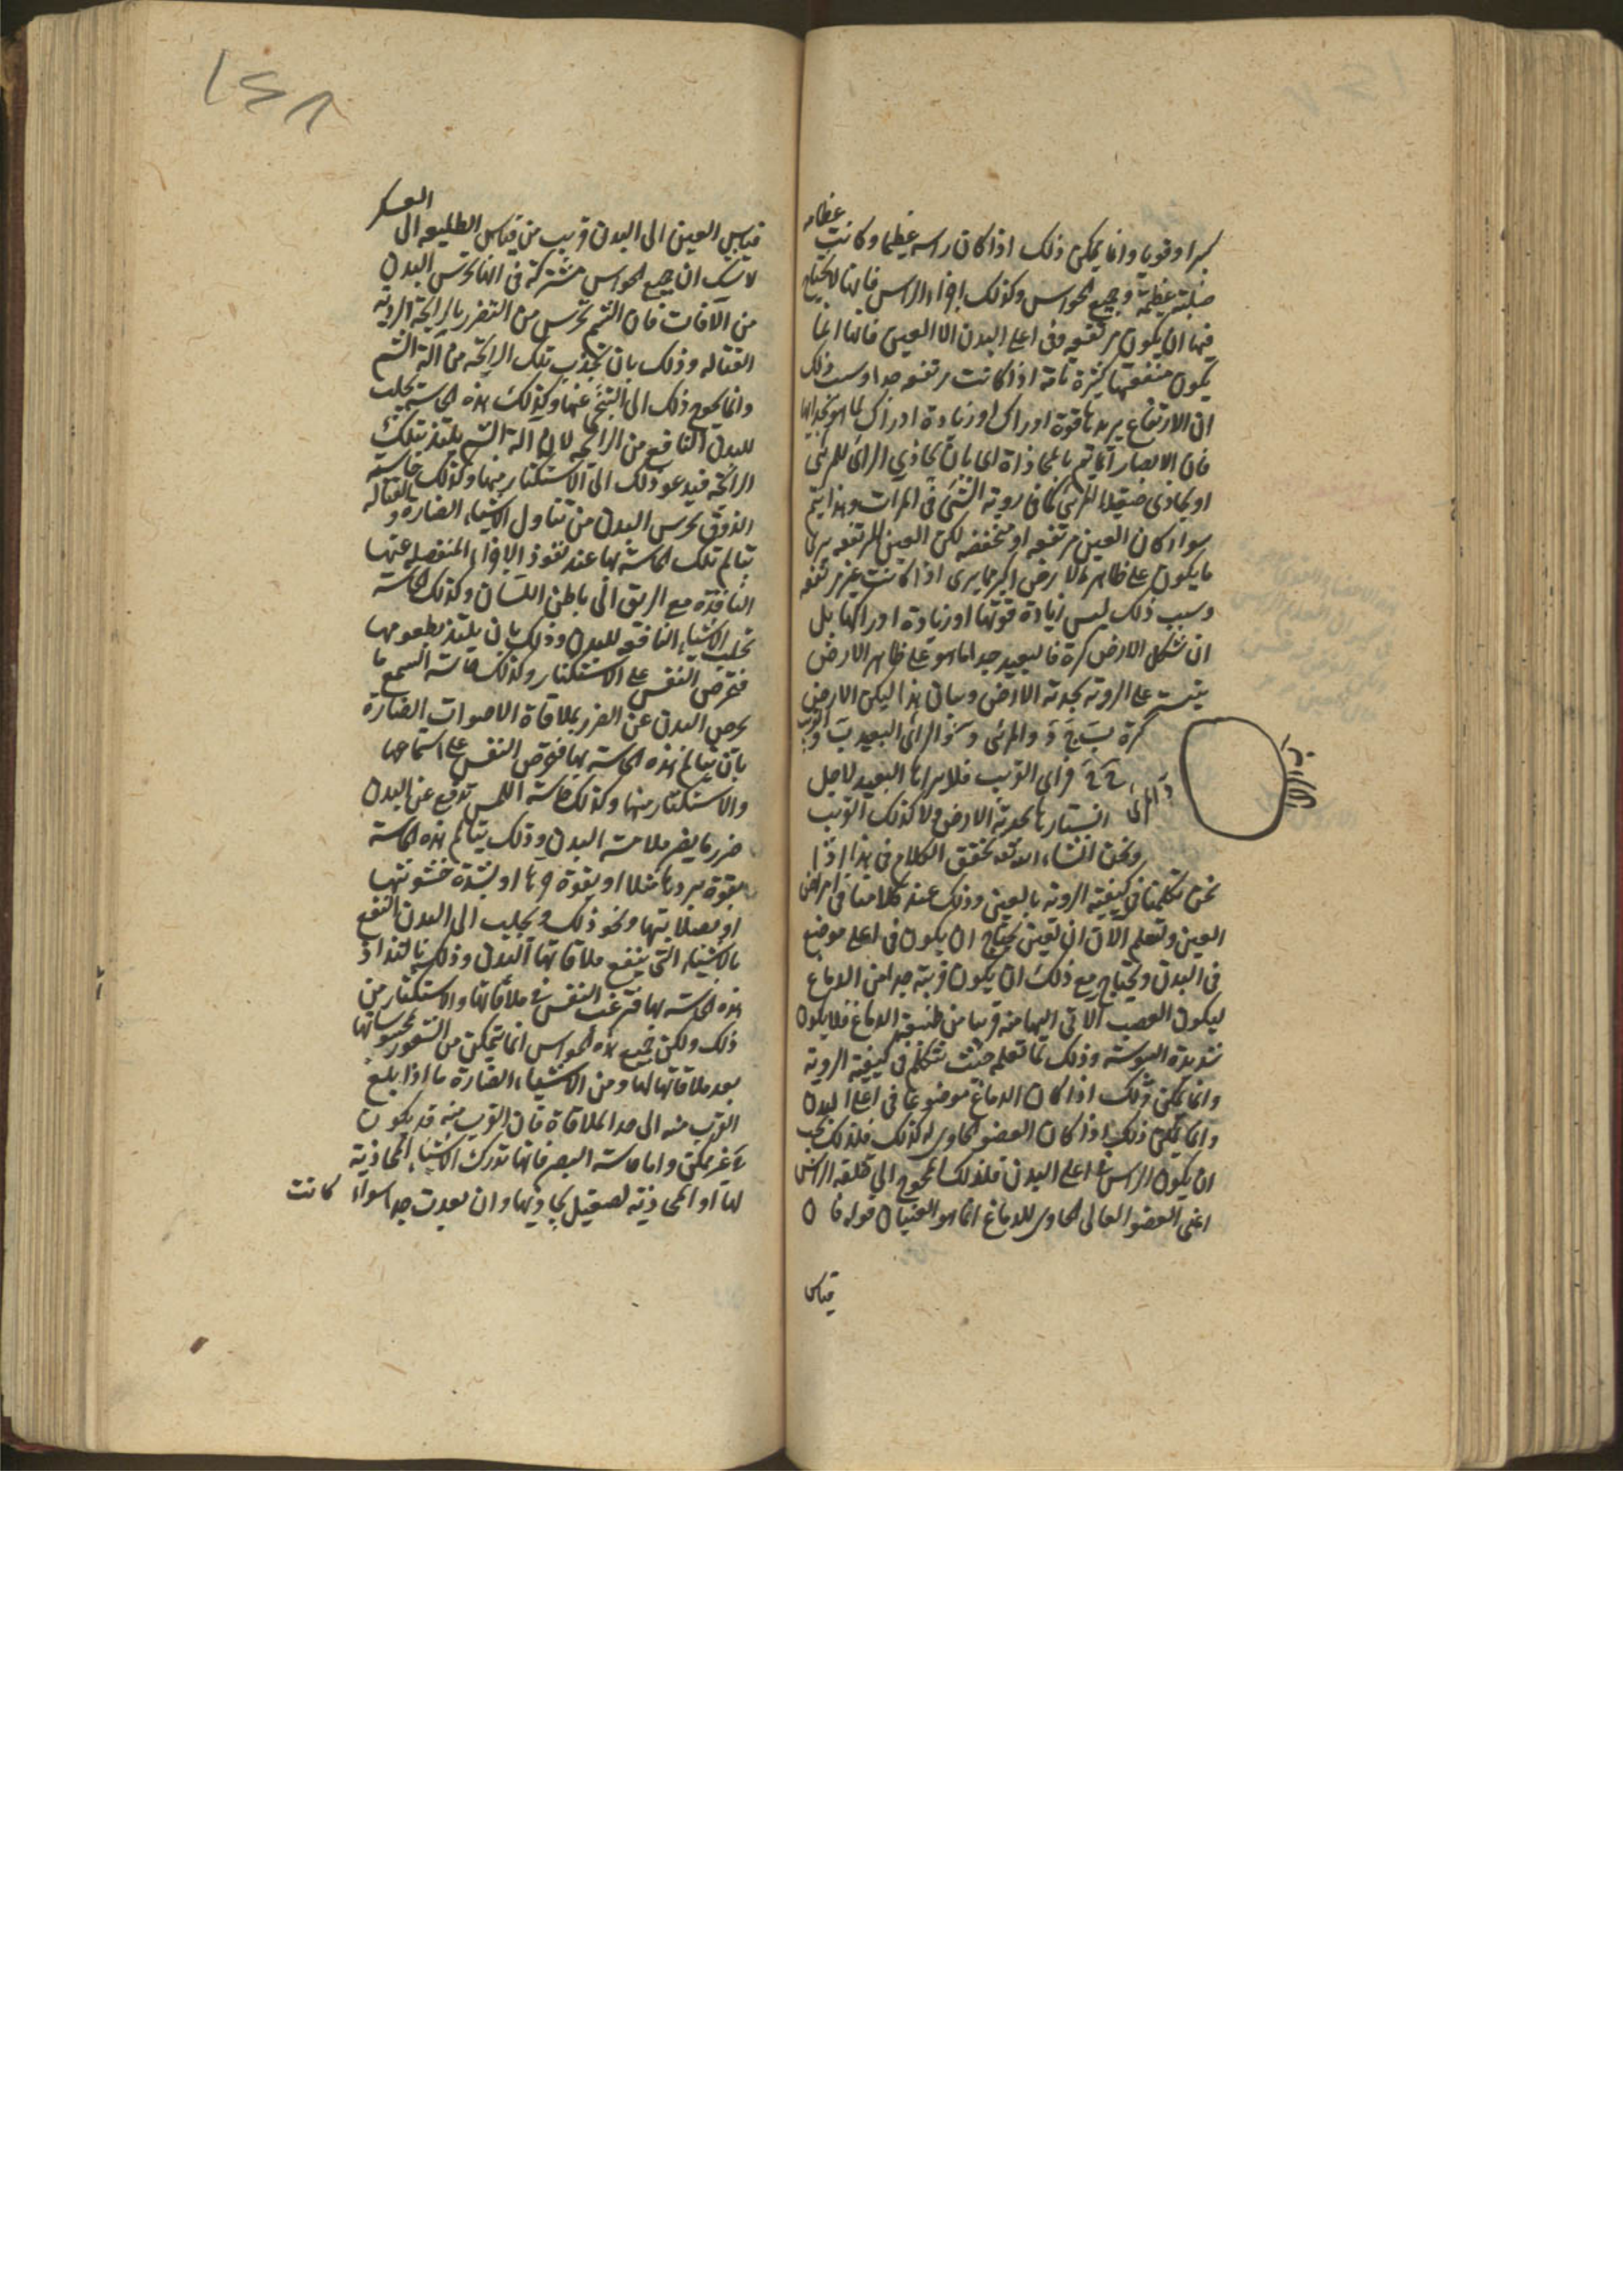 كبيرا وقويا وانما يمكن ذلك اذا كان راسه عظيما وكانت عظامه
صلبة عظيمة وجميع الحواس وكذلك اجزاء الراس فانها لا يحتاج
فيها ان يكون مرتفعه وفى اعلى البدن الا العين فانها انما
يكون منفعتها كثيرة تامة اذا كانت مرتفعه جدا وليست ذلك
ان الارتفاع يزيدها قوة ادراك او زيادة ادراك لما هو بحذائها
فان الابصار انما يتم بالمحاذاة اى بان يحاذي الرائى للمرئى
او يحاذى صقيلا للمرئى كما فى روية الشئ فى المرات وهذا يتم
سواء كان العين مرتفعه او منخفضه لكن العين المرتفعه يرى بها
ما يكون على ظاهر الارض اكثر مما يرى اذا كانت غير مرتفعه
وسبب ذلك ليس زيادة قوتها او زيادة ادراكها بل
ان شكل الارض كرة فالبعيد جدا مما هو على ظاهر الارض
يتستر على الروية بحدبة الارض وبيان هذا ليكن الارض
كرة ب ج د والمرئى والرائى البعيد والقريب
فرائى القريب فلا يراها البعيد لاجل
استتارها بحدبة الارض ولا كذلك القريب
ونحن انشاء الله تعه نحقق الكلام فى هذا اذا
نحن تكلمنا فى كيفية الروية بالعين وذلك عند كلامنا فى امراض
العين ولتعلم الان ان العين يحتاج ان يكون فى اعلى موضع
فى البدن ويحتاج مع ذلك ان يكون قريبة جدا من الدماغ
ليكون العصب الاتى اليها منه قريبا من طبيعة الدماغ فلا يكون
شديدة اليبوسة وذلك مما تعلمه حيث نتكلم فى كيفية الروية
وانما يمكن ذلك اذا كان الدماغ موضوعا فى اعلى البدن
وانما يمكن ذلك اذا كان العضو الحاوى له كذلك فلذلك يجب
ان يكون الراس فى اعلى البدن فلذلك المحوج الى خلقة الراس
اعنى العضو العالى الحاوى للدماغ انما هو العينان قوله فان
قياس
١٢٨
قياس العين الى البدن قريب من قياس الطليعه الى العسكر
لا شك ان جميع الحواس مشتركة فى انها تحرس البدن
من الآفات فان الشم تحرس من التضرر بالرايحة الردية
القتاله وذلك بان تجذب تلك الرايحة من آلة الشم
وانما يحوج ذلك الى التنحى عنها وكذلك هذه الحاسة يجلب
للبدن النافع من الرائحه لان آلة الشم يلتذ بتلك
الرائحة فيدعو ذلك الى الاستكثار منها وكذلك حاسة
الذوق يحرس البدن من تناول الاشياء الضارة والقتاله
بتالم تلك الحاسة بها عند نفوذ الاجزاء المنفصله عنها
النافذة مع الريق الى باطن اللسان وكذلك الحاسة
تجلب الاشياء النافعه للبدن وذلك بان يلتذ بطعومها
فتحرص النفس على الاستكثار وكذلك حاسة السمع ما
يحرص البدن عن الضرر بملاقاة الاصوات الضارة
بان يتالم هذه الحاسة بها فتحرص النفس على استماعها
والاستكثار منها وكذلك حاسة اللمس تدفع عن البدن
ضرر ما يضر ملامسة البدن وذلك يتالم هذه الحاسة
بقوة بردها مثلا او بقوة حرها او بشدة خشونتها
او بصلابتها ونحو ذلك ويجلب الى البدن النفع
بالاشياء التى ينفع ملاقاتها البدن وذلك بالتذاذ
هذه الحاسة بها فترغب النفس فى ملاقاتها والاستكثار من
ذلك ولكن جميع هذه الحواس انما تتمكن من الشعور بمحسوساتها
بعد ملاقاتها لها ومن الاشياء الضارة ما اذا بلغ
القرب منه الى حد الملاقاة فان القرب منه قد يكون
غير ممكن واما حاسة البصر فانها تدرك الاشياء المحاذية
لها او المحاذية لصقيل يحاذيها وان بعدت جدا سواء كانت